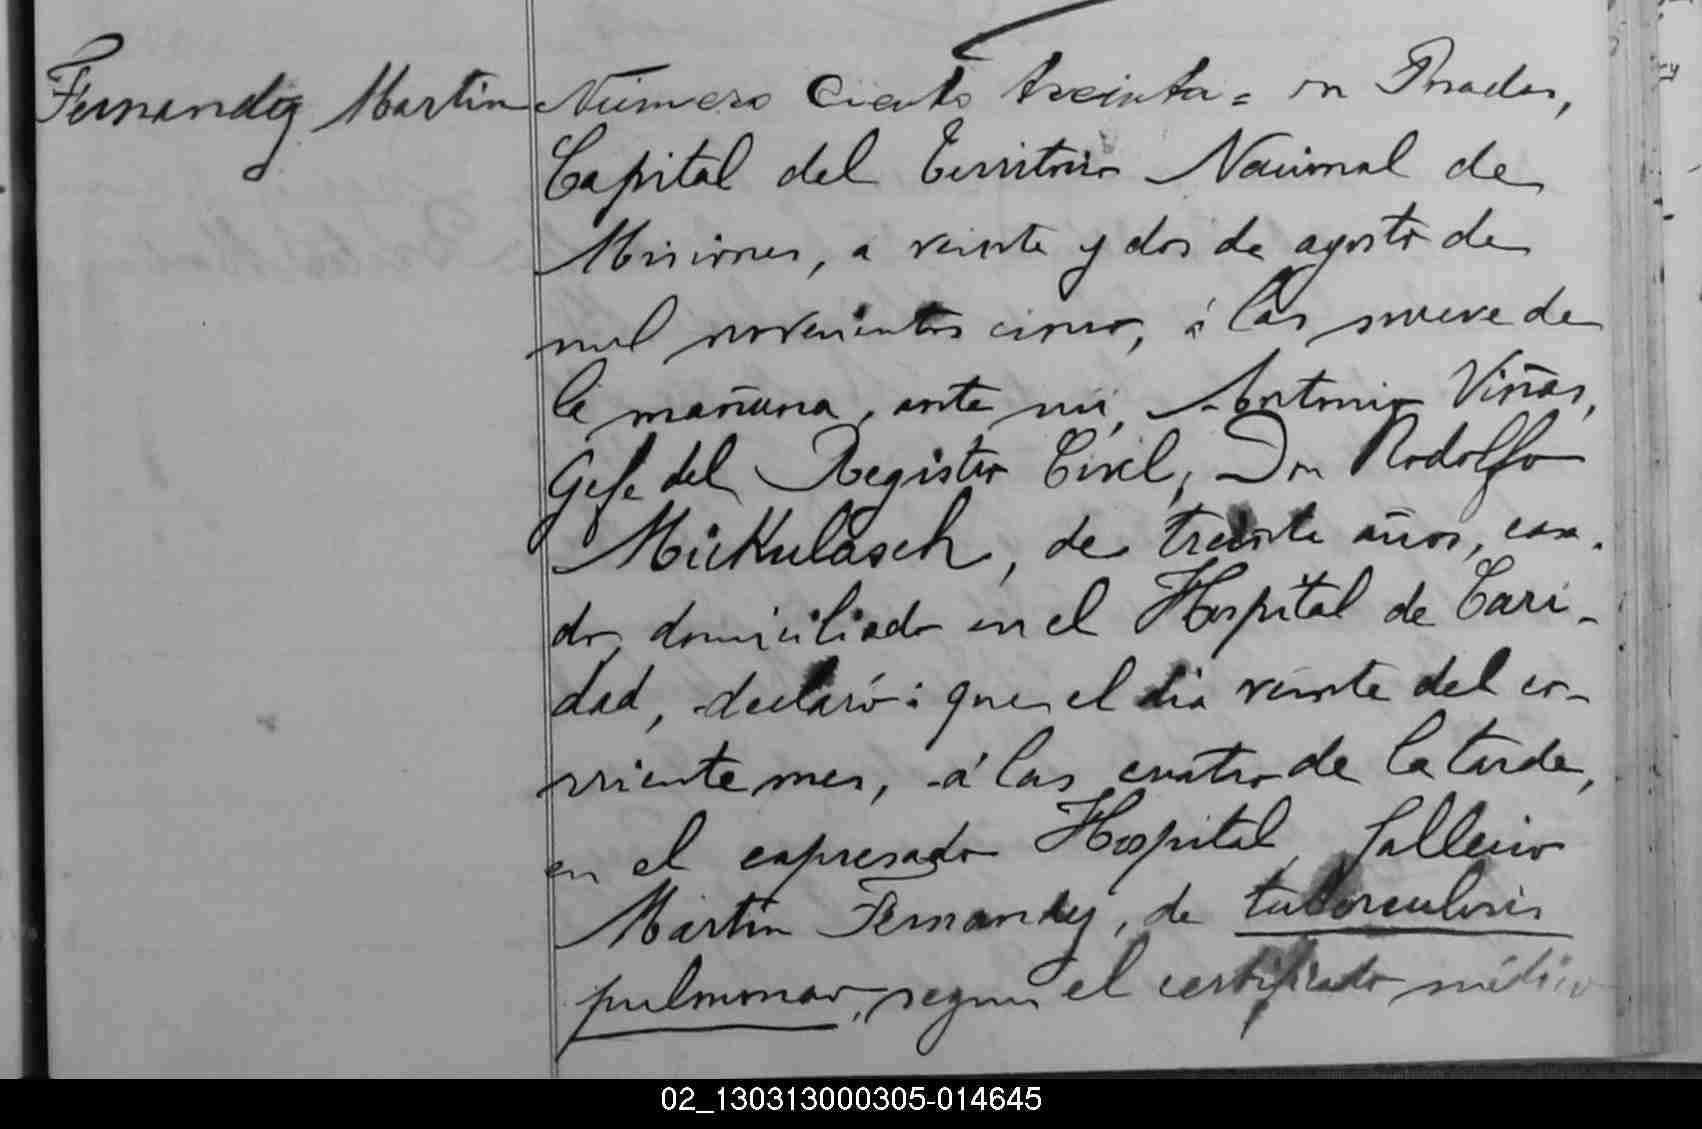 Fernandez Martin
Número Ciento treinta = en Posadas,
Capital del Territorio Nacional de
Misiones, a veinte y dos de agosto de
mil novecientos cinco, á las nueve de
la mañana, ante mí, Antonio Viñas,
Gefe del Registro Civil, Don Rodolfo
Mickulasch, de treinta años, casa-
do, domiciliado en el Hospital de Cari-
dad, declaró: que el dia veinte del co-
rriente mes, á las cuatro de la tarde,
en el expresado Hospital, falleció
Martin Fernandez, de tuberculosis
pulmonar, segun el certificado médico
02_130313000305-014645